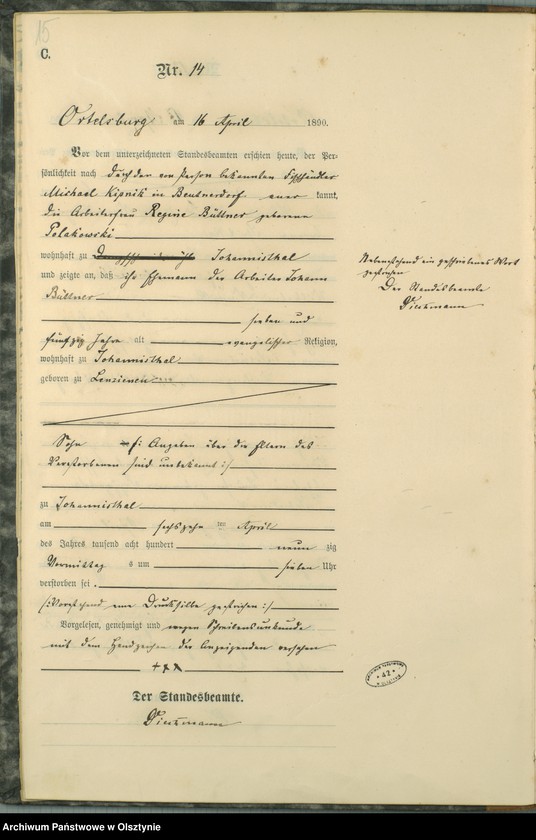 15
C.
Nr. 14
Ortelsburg am 16 April 1890.
Vor dem unterzeichneten Standesbeamten erschien heute, der Per-
sönlichkeit nach durch den von Person bekannten
Michael Kipnik in Beutnerdorf aner kannt,
die Arbeiterfrau Regine Büttner geborene
Polakowski
wohnhaft zu Johannisthal
und zeigte an, daß ihr Ehemann der Arbeiter Johann
Büttner
sieben und
fünfzig Jahre alt evangelischer Religion,
wohnhaft zu Johannisthal
geboren zu
Sohn /: Angaben über die Eltern des
Verstorbenen sind unbekannt :/
zu Johannisthal
am sechszehn ten April
des Jahres tausend acht hundert neun zig
Vormittag s um sieben Uhr
verstorben sei.
/: Vorstehend eine Drucksilbe gestrichen :/
Vorgelesen, genehmigt und wegen Schreibensunkunde
mit dem Handzeichen der Anzeigenden versehen
+++
Der Standesbeamte.
Dieckmann
Nebenstehend ein geschriebenes Wort
gestrichen
Der Standesbeamte
Dieckmann
42
Archiwum Państwowe w Olsztynie